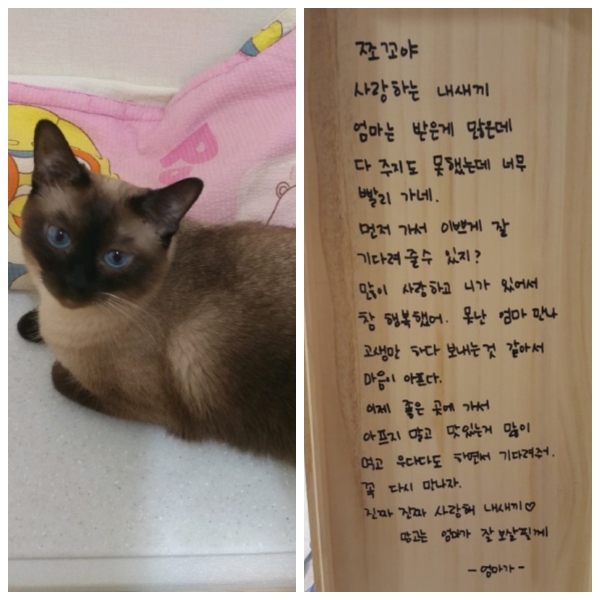 쪼꼬야
사랑하는 내새끼
엄마는 받은게 많은데
다 주지도 못했는데 너무
빨리 가네.
먼저 가서 이쁘게 잘
기다려 줄수 있지?
많이 사랑하고 니가 있어서
참 행복했어. 못난 엄마 만나
고생만 하다 보내는것 같아서
마음이 아프다.
이제 좋은 곳에 가서
아프지 말고 맛있는거 많이
먹고 우다다도 하면서 기다려줘.
꼭 다시 만나자.
진짜 진짜 사랑해 내새끼♡
망고는 엄마가 잘 보살필게
- 엄마가 -